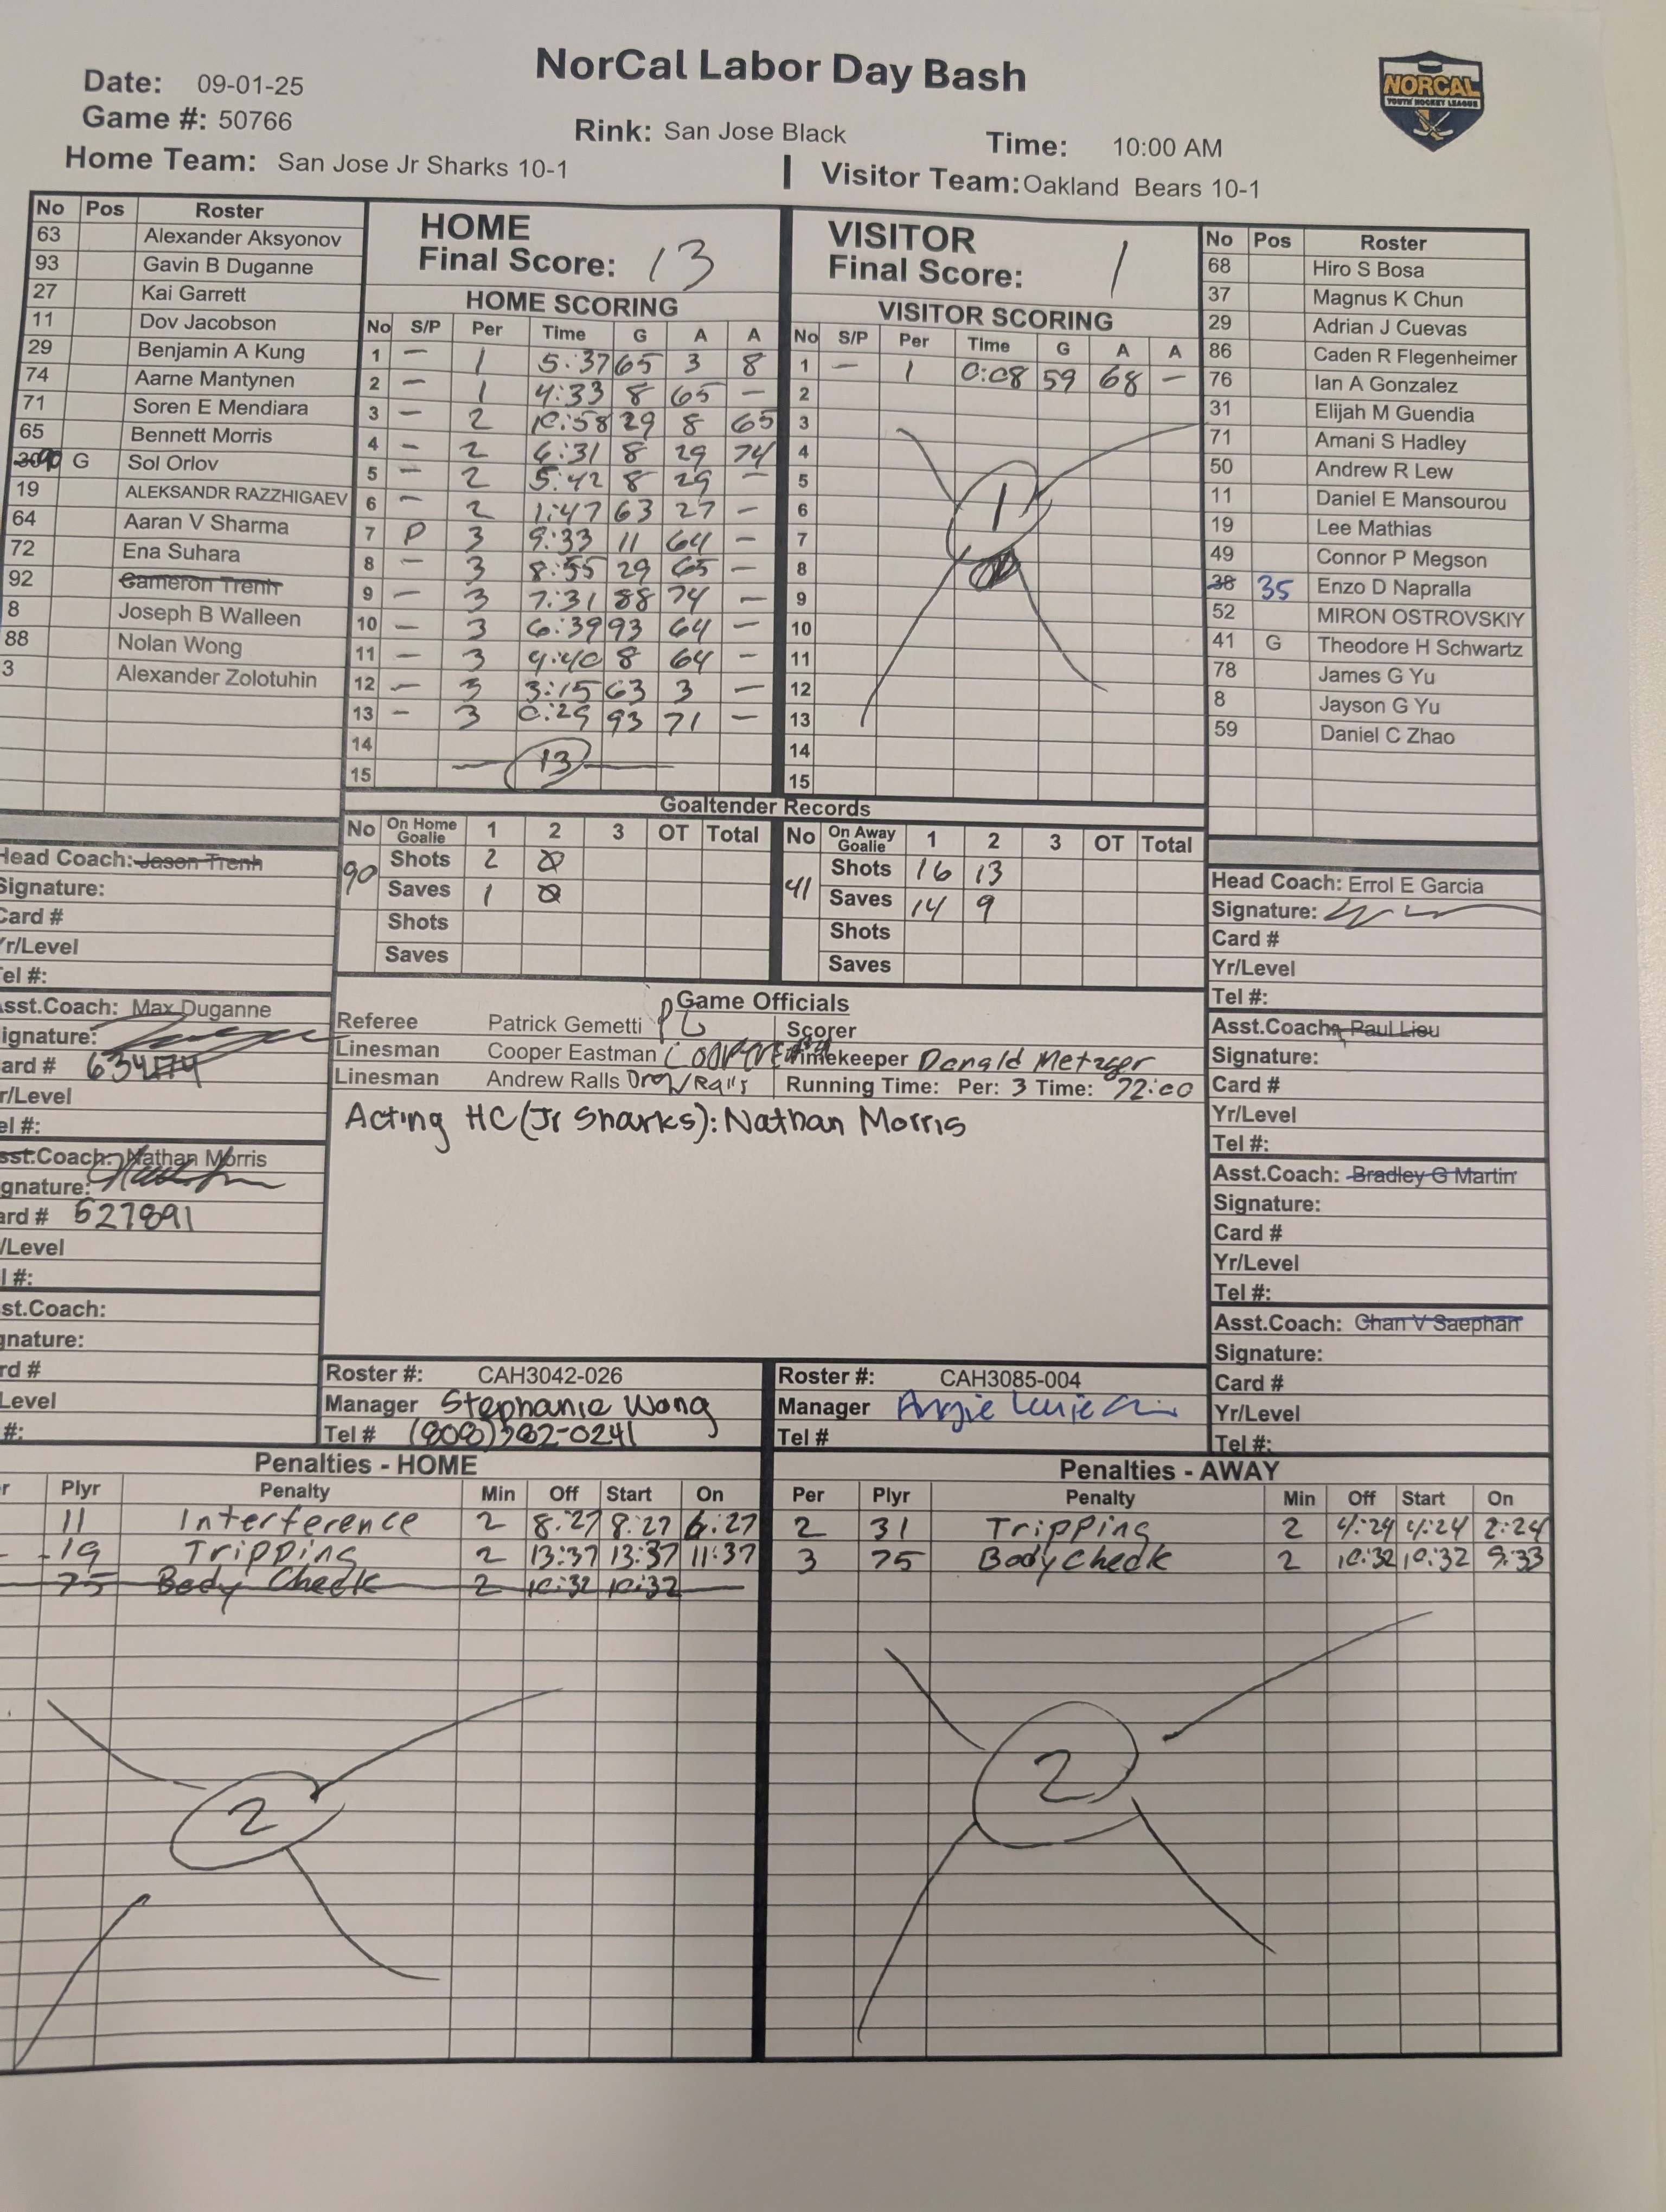 NorCal Labor Day Bash
NORCAL
YOUTH HOCKEY LEAGUE
Date: 09-01-25
Game #: 50766
Rink: San Jose Black
Time: 10:00 AM
Home Team: San Jose Jr Sharks 10-1
Visitor Team: Oakland Bears 10-1
No Pos Roster
63 Alexander Aksyonov
93 Gavin B Duganne
27 Kai Garrett
11 Dov Jacobson
29 Benjamin A Kung
74 Aarne Mantynen
71 Soren E Mendiara
65 Bennett Morris
90 G Sol Orlov
19 ALEKSANDR RAZZHIGAEV
64 Aaran V Sharma
72 Ena Suhara
92 Cameron Trenh
8 Joseph B Walleen
88 Nolan Wong
3 Alexander Zolotuhin
HOME
Final Score: 13
HOME SCORING
No S/P Per Time G A A
1 - 1 5:37 65 3 8
2 - 1 4:33 8 65 -
3 - 2 10:58 29 8 65
4 - 2 6:31 8 29 74
5 - 2 5:42 8 29 -
6 - 2 1:47 63 27 -
7 P 3 9:33 11 64 -
8 - 3 8:55 29 65 -
9 - 3 7:31 88 74 -
10 - 3 6:39 93 64 -
11 - 3 4:40 8 64 -
12 - 3 3:15 63 3 -
13 - 3 0:29 93 71 -
14
15
13
VISITOR
Final Score: 1
VISITOR SCORING
No S/P Per Time G A A
1 - 1 0:08 59 68 -
2
3
4
5
6
7
8
9
10
11
12
13
14
15
1
No Pos Roster
68 Hiro S Bosa
37 Magnus K Chun
29 Adrian J Cuevas
86 Caden R Flegenheimer
76 Ian A Gonzalez
31 Elijah M Guendia
71 Amani S Hadley
50 Andrew R Lew
11 Daniel E Mansourou
19 Lee Mathias
49 Connor P Megson
38 35 Enzo D Napralla
52 MIRON OSTROVSKIY
41 G Theodore H Schwartz
78 James G Yu
8 Jayson G Yu
59 Daniel C Zhao
Goaltender Records
No On Home Goalie 1 2 3 OT Total
90 Shots 2 0
Saves 1 0
Shots
Saves
No On Away Goalie 1 2 3 OT Total
41 Shots 16 13
Saves 14 9
Shots
Saves
Head Coach: Jason Trenh
Signature:
Card #
Yr/Level
Tel #:
Asst.Coach: Max Duganne
Signature:
Card #
Yr/Level
Tel #:
Asst.Coach: Nathan Morris
Signature:
Card # 527891
Yr/Level
Tel #:
Asst.Coach:
Signature:
Card #
Level
#:
Game Officials
Referee Patrick Gemetti PG
Scorer
Linesman Cooper Eastman
Timekeeper Donald Metzger
Linesman Andrew Ralls Drew Ralls
Running Time: Per: 3 Time: 12:00
Acting HC (Jr Sharks): Nathan Morris
Head Coach: Errol E Garcia
Signature:
Card #
Yr/Level
Tel #:
Asst.Coach: Paul Lieu
Signature:
Card #
Yr/Level
Tel #:
Asst.Coach: Bradley G Martin
Signature:
Card #
Yr/Level
Tel #:
Asst.Coach: Chan V Saephan
Signature:
Card #
Yr/Level
Tel #:
Roster #: CAH3042-026
Manager Stephanie Wong
Tel # (808)382-0241
Roster #: CAH3085-004
Manager Angie
Tel #
Penalties - HOME
Plyr Penalty Min Off Start On
11 Interference 2 8:27 8:27 6:27
19 Tripping 2 13:37 13:37 11:37
75 Body Check 2 10:32 10:32
2
Penalties - AWAY
Per Plyr Penalty Min Off Start On
2 31 Tripping 2 4:24 4:24 2:24
3 75 Body Check 2 10:32 10:32 9:33
2